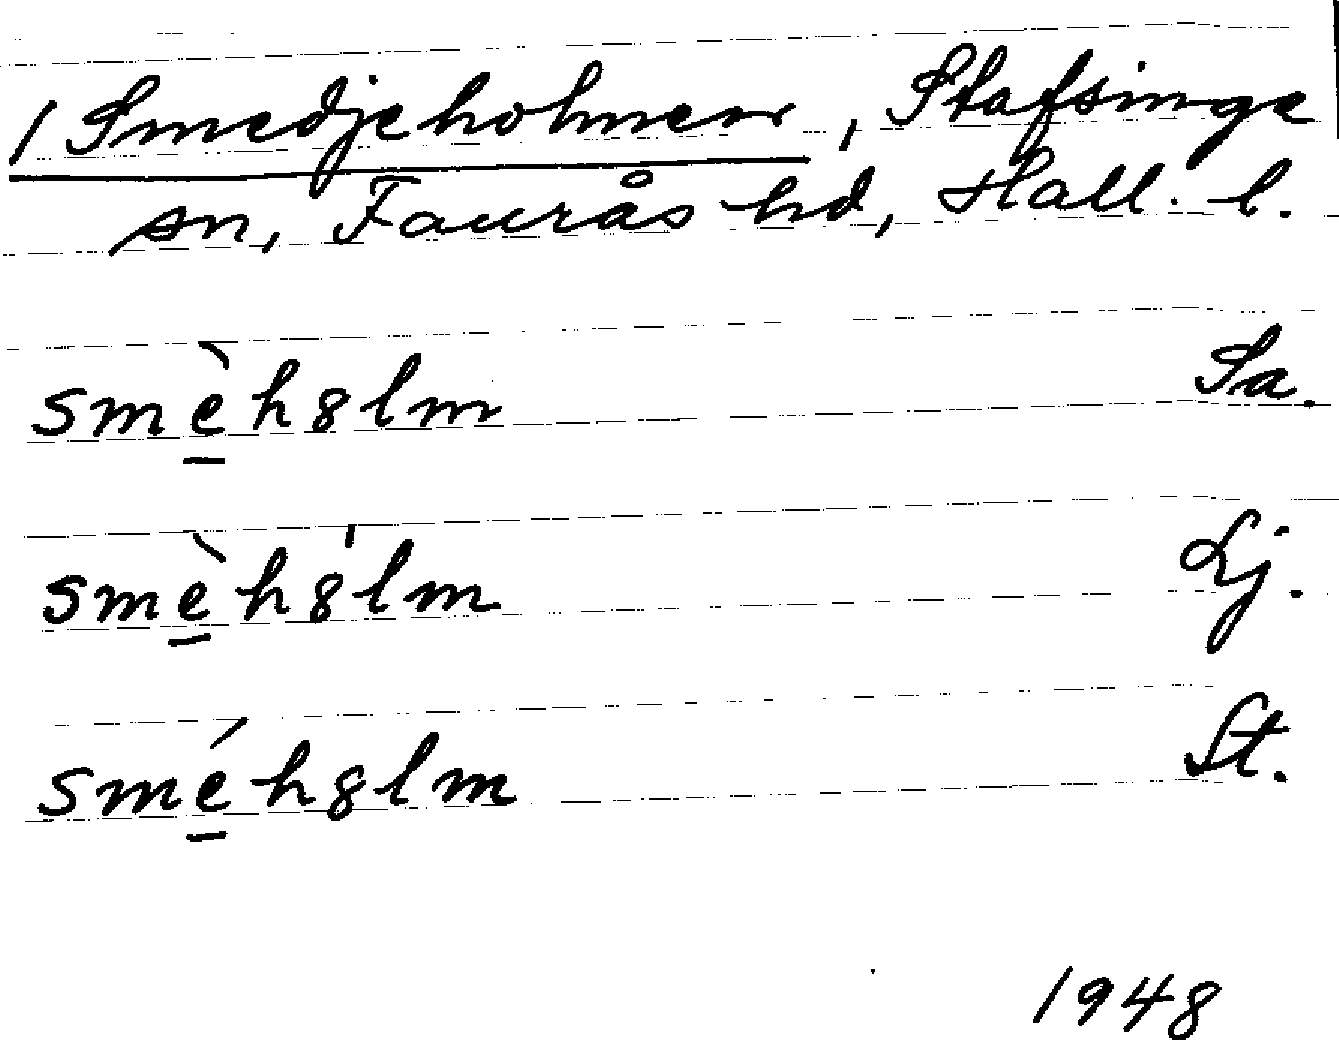 1 Smedjeholmen, Stafsinge
sn, Faurås hd, Hall. l.
smè̱h8lm Sa.
smè̱h8̍lm Lj.
smé̱h8lm St.
1948